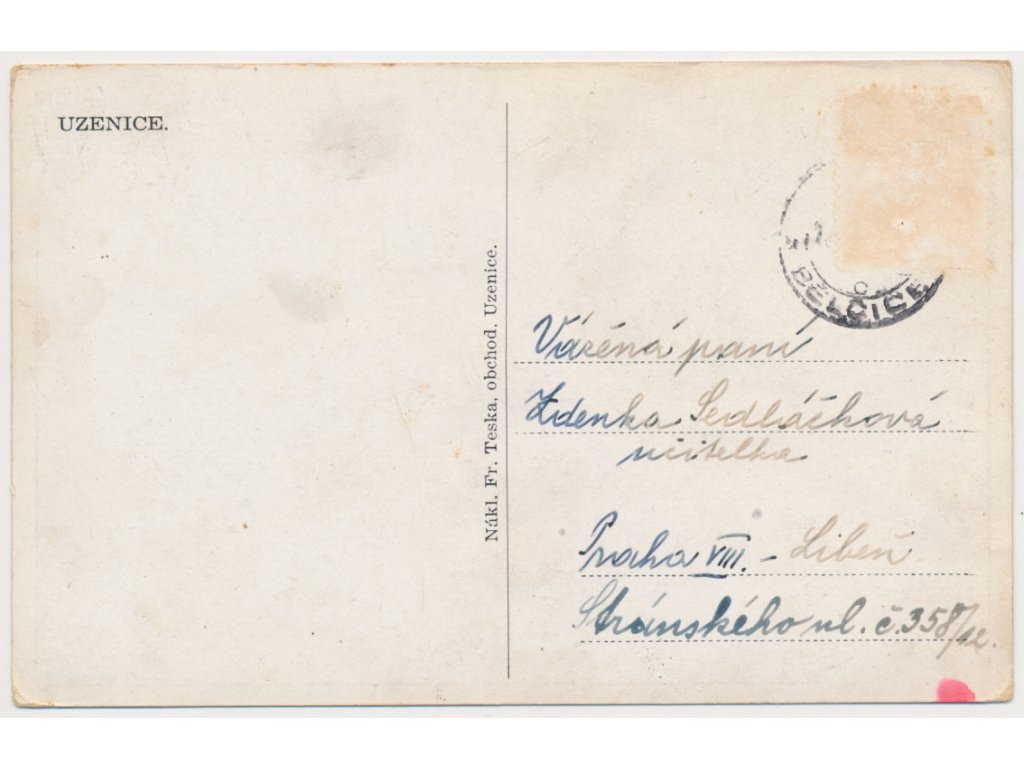 UZENICE.
Nákl. Fr. Teska, obchod. Uzenice.
BĚLČICE
C
Vážená paní
Zdenka Sedláčková
učitelka
Praha VIII. - Libeň
Stránského ul. č. 358/